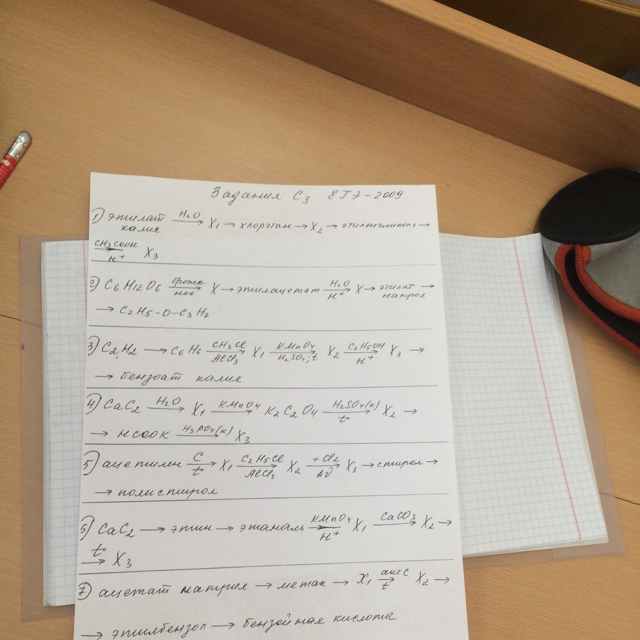 Задания C3 ЕГЭ-2009
1) этилат калия —H2O→ X1 → хлорэтан → X2 → этиленгликоль →
CH3COOH/H+ → X3
2) C6H12O6 —брожение→ X → этилацетат —H2O/H+→ X → этилат натрия →
→ C2H5-O-C3H7
3) C2H2 → C6H6 —CH3Cl/AlCl3→ X1 —KMnO4/H2SO4, t→ X2 —C2H5OH/H+→ X3 →
→ бензоат калия
4) CaC2 —H2O→ X1 —KMnO4→ K2C2O4 —H2SO4(к)/t→ X2 →
→ HCOOK —H3PO4(к)→ X3
5) ацетилен —C/t→ X1 —C2H5Cl/AlCl3→ X2 —+Cl2/hν→ X3 → стирол →
→ полистирол
6) CaC2 → этин → этаналь —KMnO4/H+→ X1 —CaCO3→ X2 →
t → X3
7) ацетат натрия → метан → X1 —акт C/t→ X2 →
→ этилбензол → бензойная кислота